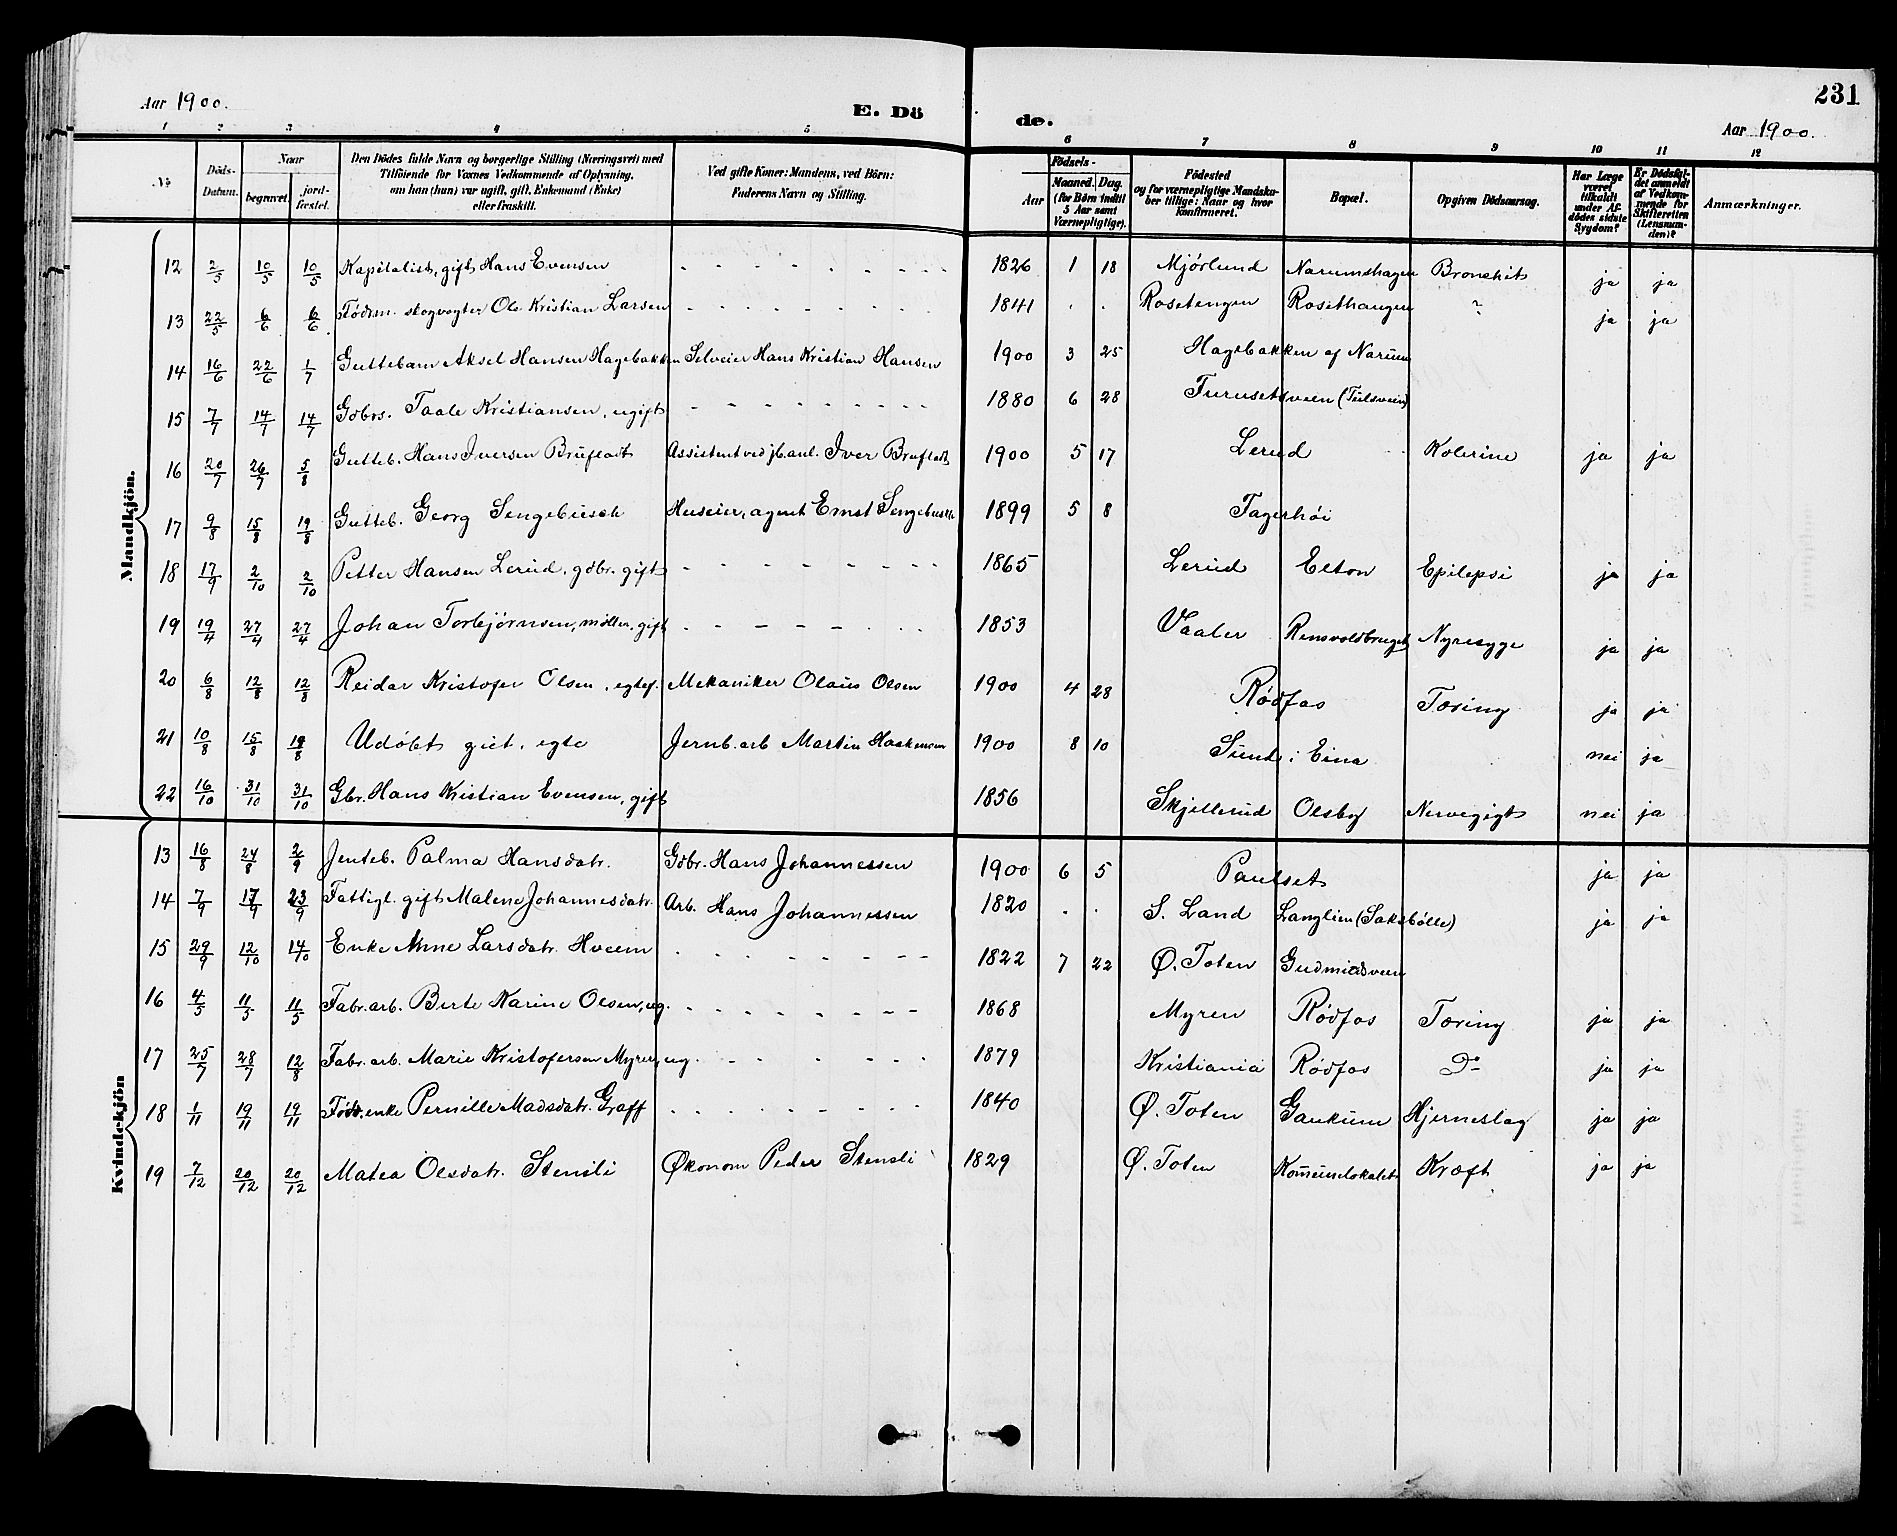 231
Aar 1900.
E. Dö
de.
Aar 1900.
1 2 3 4 5 6 7 8 9 10 11 12
No
Döds-Datum.
Naar
begravet.
jord-fæstet.
Den Dödes fulde Navn og borgerlige Stilling (Næringsvei) med
Tilföiende for Voxnes Vedkommende af Oplysning,
om han (hun) var ugift, gift, Enkemand (Enke)
eller fraskilt.
Ved gifte Koner: Mandens, ved Börn:
Faderens Navn og Stilling.
Aar
Födsels-
Maaned. Dag.
(for Börn indtil
5 Aar samt
Værnepligtige).
Födested
og for værnepligtige Mandska-
ber tillige: Naar og hvor
konfirmeret.
Bopæl.
Opgiven Dödsaarsag.
Har Læge
været
tilkaldt
under Af-
dødes sidste
Sygdom?
Er Dödsfal-
det anmeldt
af Vedkom-
mende for
Skifteretten
(Lensman-
den)?
Anmærkninger.
Mandkjön.
12 2/5 10/5 10/5 Kapitalist, gift Hans Evensen 1826 1 18 Mjørlund Narumshagen Bronchit ja ja
13 22/5 6/6 6/6 Födsm. skogvogter Ole Kristian Larsen 1841 . . Rosetengen Rosethaugen ? ja ja
14 16/6 22/6 1/7 Guttebarn Aksel Hansen Hagebakken Selveier Hans Kristian Hansen 1900 3 25 Hagebakken af Narum
15 7/7 14/7 14/7 Gdbrs. Taale Kristiansen, ugift 1880 6 28 Furusetsveen
16 20/7 26/7 5/8 Gutteb. Hans Iversen Brufladt Assistent ved jb.anl. Iver Brufladt 1900 5 17 Lerud Kolerine ja ja
17 9/8 15/8 19/8 Gutteb. Georg Sengebusch Huseier, agent Ernst Sengebusch 1899 5 8 Fagerhöi
18 17/9 2/10 2/10 Petter Hansen Lerud, gdbr. gift 1865 Lerud Elton Epilepsi ja ja
19 19/4 27/4 27/4 Johan Torbjørnsen, møller, gift 1853 Vaaler Rensvoldbruget Nyresyge ja ja
20 6/8 12/8 12/8 Reidar Kristofer Olsen, egtef. Mekaniker Olaus Olsen 1900 4 28 Rødfos Tæring ja ja
21 10/8 15/8 19/8 Udøbt gut, egte Jernb.arb Martin Haakensen 1900 8 10 Sund i Eina nei ja
22 16/10 31/10 31/10 Gbr. Hans Kristian Evensen, gift 1856 Skjellerud Olsby Nervegigt nei ja
Kvindekjön
13 16/8 24/8 2/9 Jenteb. Palma Hansdatr. Gdbr. Hans Johannessen 1900 6 5 Paulset ja ja
14 7/9 17/9 23/9 Fattigl. gift Malene Johannesdatr. Arb. Hans Johannessen 1820 . . S. Land Langlien (Saksbølle) ja ja
15 29/9 12/10 14/10 Enke Anne Larsdatr. Hveem 1822 7 22 Ø. Toten Gudmidsveen
16 4/5 11/5 11/5 Fabr.arb. Berte Karine Olsen, ug. 1868 Myren Rødfos Tæring ja ja
17 25/7 28/7 12/8 Fabr.arb. Marie Kristofersen Myren, ug. 1879 Kristiania Rødfos Do ja ja
18 1/11 19/11 19/11 Fødr. enke Pernille Madsdatr. Graff 1840 Ø. Toten Gaukum Hjerneslag ja ja
19 7/12 20/12 20/12 Matea Olsdatr. Stensli Økonom Peder Stensli 1829 Ø. Toten Kommunelokalet Kræft ja ja